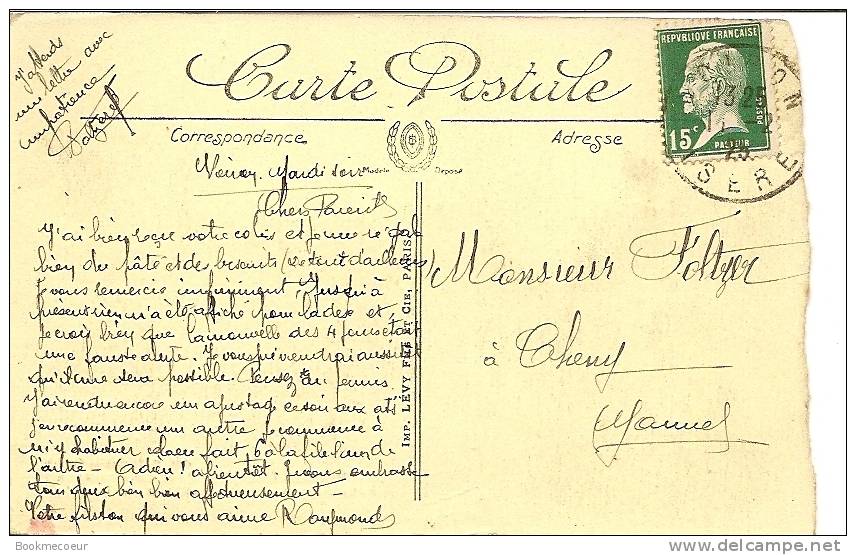 J'attends
une lettre avec
impatience
Carte Postale
Correspondance
Adresse
Modèle Déposé
REPVBLIQUE FRANÇAISE
POSTES
15c
PASTEUR
13 25
25
ISERE
Mardi soir
Chers Parents
J'ai bien reçu votre colis et je me régale
bien du pâté et des biscuits (
Je vous remercie infiniment. Jusqu'à
présent rien n'a été affiché pour la date et
je crois bien que la nouvelle des 4 jours était
une fausse alerte. Je vous préviendrai aussitôt
qu'il me sera possible. Pensez au permis
J'ai rendu encore un ajustage ce soir
j'en recommence un autre je commence à
m'y habituer cela en fait 6 à la file l'un de
l'autre - Adieu! à bientôt. Je vous embrasse
tous deux bien bien affectueusement -
Votre fiston qui vous aime Raymond
IMP. LÉVY FILS ET CIE. PARIS
Monsieur Foltzer
à Cheny
Bookmecoeur
www.delcampe.net